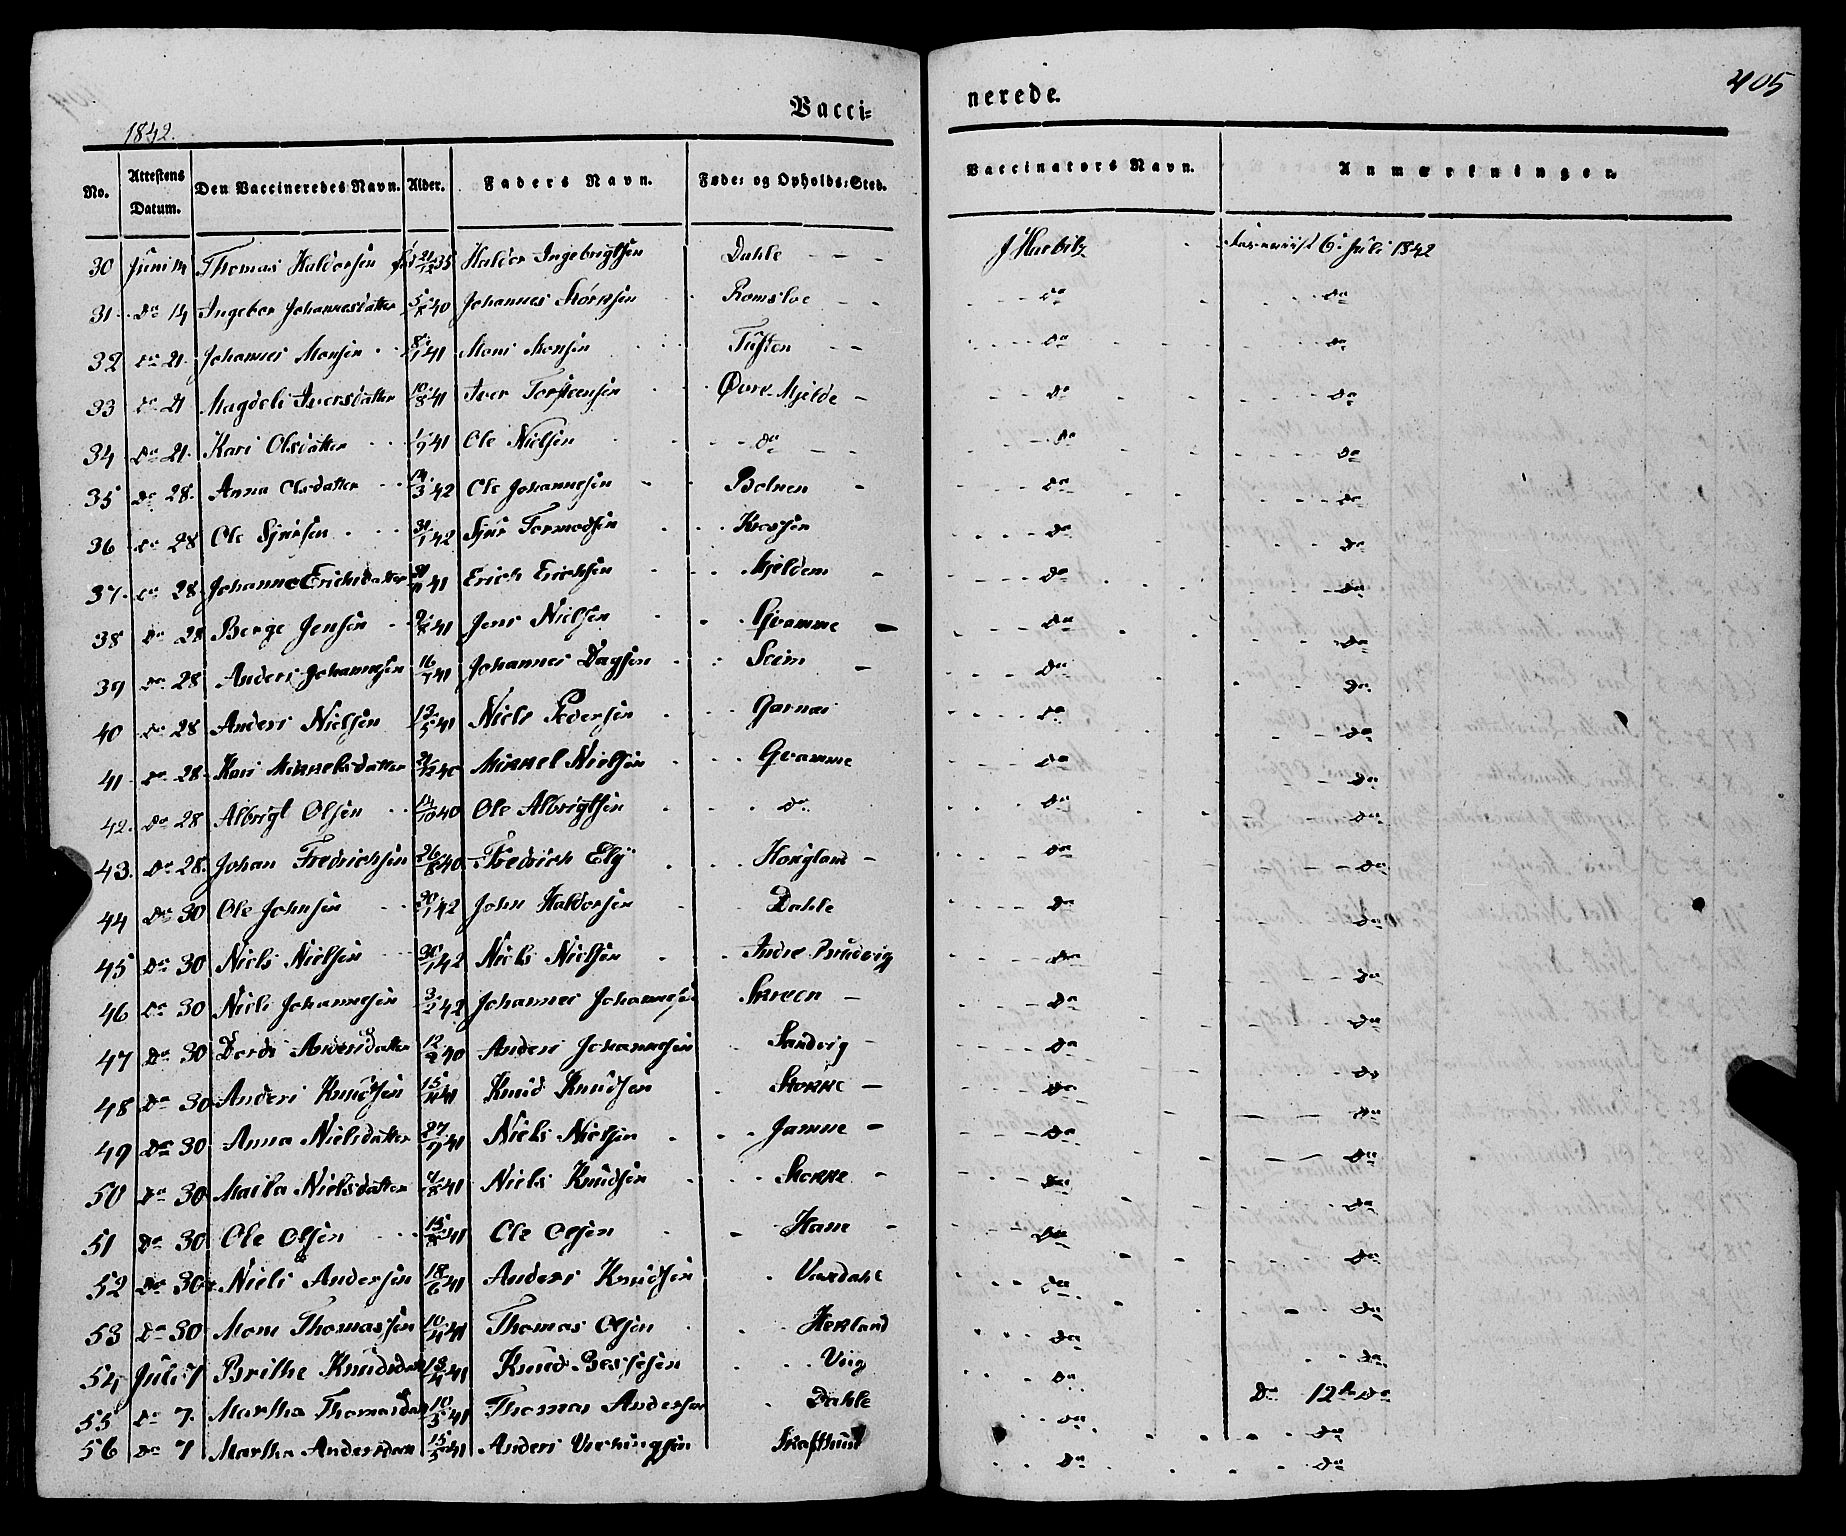 405
Vacci-nerede.
1842.
No. Attestens Datum. Den Vaccineredes Navn. Alder. Faders Navn. Føde- og Opholds-Sted. Vaccinators Navn. Anmærkninger.
30 Juni 14 Thomas Haldorsen 21/12 35 Haldor Ingebrigtsen Dahle 6 Juli 1842
31 do 14 Ingebor Johannesdatter 5/8 40 Johannes Romsloe do do
32 do 21 Johannes Monsen 41 Mons Monsen Tuften do do
33 do 21 Magdeli Iversdatter 10/8 41 Iver Torsteensen Øvre Mjelde do do
34 do 21 Kari Olsdatter 41 Ole Nielsen do do do
35 do 28 Anna Olsdatter 14/3 42 Ole Johannesen Bolnen do do
36 do 28 Ole Sjursen 31/1 42 Sjur Tormodsen do do
37 do 28 Johanne Erichsdatter 41 Erich Erichsen Mjeldem do do
38 do 28 Berge Jensen 41 Jens Nielsen Gvamme do do
39 do 28 Anders Johannesen 16/7 41 Johannes Dagsen Seeim do do
40 do 28 Anders Nielsen 12/5 41 Niels Pedersen Garnæs do do
41 do 28 Kari Mikkelsdatter 40 Mikkel Nielsen Gvamme do do
42 do 28 Albrigt Olsen 14/10 40 Ole Albrigtsen do do do
43 do 28 Johan Fredrichsen 26/8 40 Fredrich Elg Hougland do do
44 do 30 Ole Johnsen 30/1 42 John Haldorsen Dahle do do
45 do 30 Niels Nielsen 30/1 42 Niels Nielsen Indre Bruvig do do
46 do 30 Niels Johannesen 3/2 42 Johannes Johannesen Skreen do do
47 do 30 Dorde Andersdatter 12/2 40 Anders Johannesen Sandvig do do
48 do 30 Anders Knudsen 15/11 41 Knud Knudsen Stokke do do
49 do 30 Anna Nielsdatter 27/9 41 Niels Nielsen Jamne do do
50 do 30 Marta Nielsdatter 4/8 41 Niels Knudsen Stokke do do
51 do 30 Ole Olsen 15/8 41 Ole Olsen Hane do do
52 do 30 Niels Andersen 18/6 41 Anders Knudsen Vardahl do do
53 do 30 Mons Thomassen 10/11 41 Thomas Olsen Herland do do
54 Juli 7 Brithe Knudsdatter 13/11 41 Knud Veig do do 12te do
55 do 7 Martha Thomasdatter 10/3 41 Thomas Andersen Dahle do do
56 do 7 Martha Andersdatter 15/5 41 Anders do do